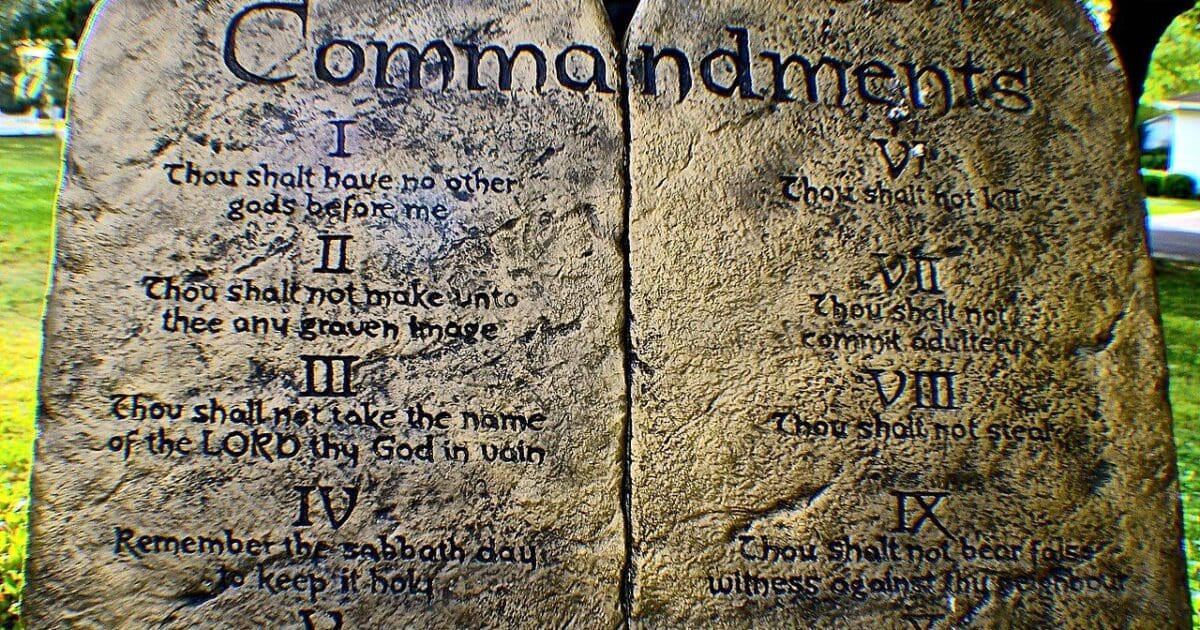 Commandments
I
Thou shalt have no other
gods before me
II
Thou shalt not make unto
thee any graven image
III
Thou shalt not take the name
of the LORD thy God in vain
IV
Remember the sabbath day,
to keep it holy
V
VI
Thou shalt not kill
VII
Thou shalt not
commit adultery
VIII
Thou shalt not steal
IX
Thou shalt not bear false
witness against thy neighbour